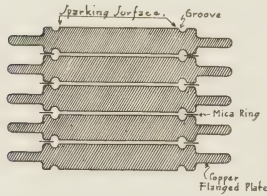 Sparking Surface.
Groove
Mica Ring
Copper
Flanged Plate